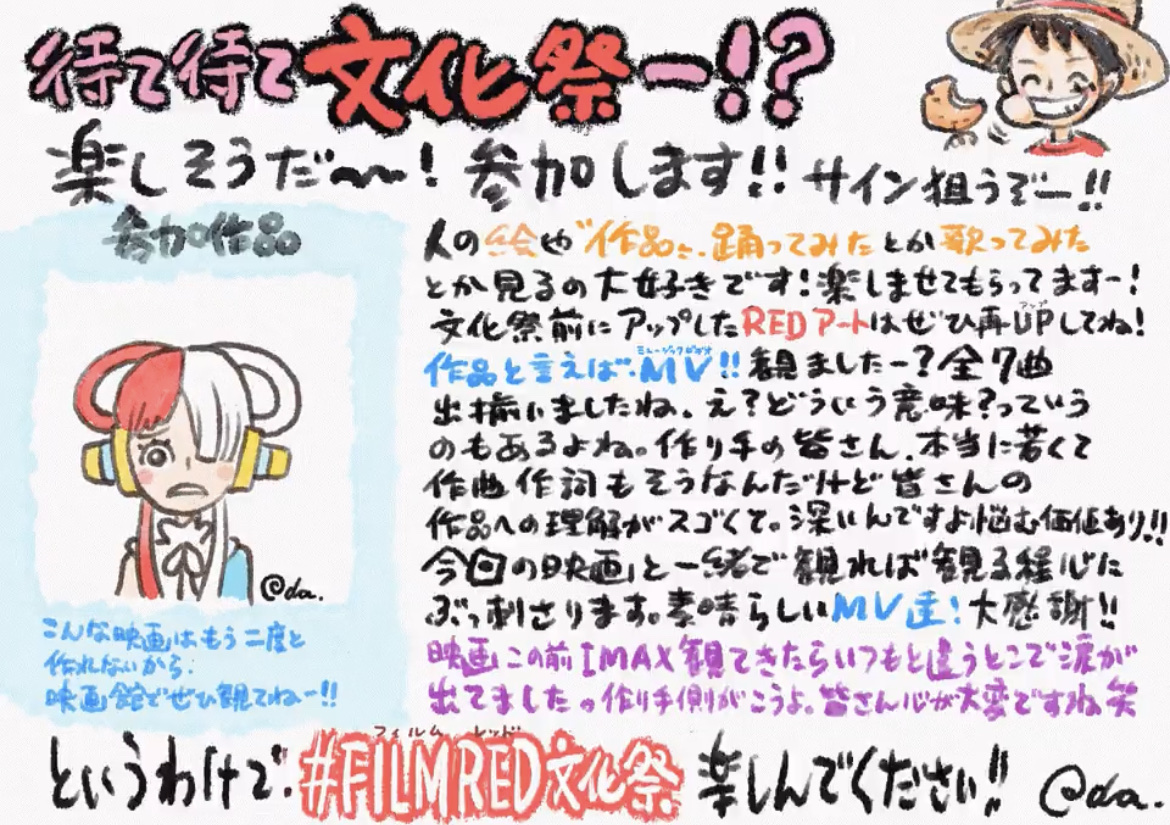 待て待て文化祭ー!?
楽しそうだ〜〜! 参加します!! サイン狙うぞー!!
参加作品
@da.
こんな映画はもう二度と
作れないから.
映画館でぜひ観てねー!!
人の絵や"作品"、踊ってみたとか歌ってみた
とか見るの大好きです!楽しませてもらってますー!
アップ
文化祭前にアップしたREDアートはぜひ再UPしてね!
ミュージックビデオ
作品と言えば.MV!! 観ましたー?全7曲
出揃いましたね。え?どういう意味?っていう
のもあるよね。作り手の皆さん、本当に若くて
作曲作詞もそうなんだけど皆さんの
作品への理解がスゴくて。深いんですよ悩む価値あり!!
今回の映画と一緒で観れば観る程心に
ぶっ刺さります。素晴らしいMV達!大感謝!!
映画この前IMAX観てきたらいつもと違うとこで涙が
出てました。作り手側がこうよ。皆さん心が大変ですね笑
フィルム レッド
というわけで.#FILMRED文化祭 楽しんでください!! @da.